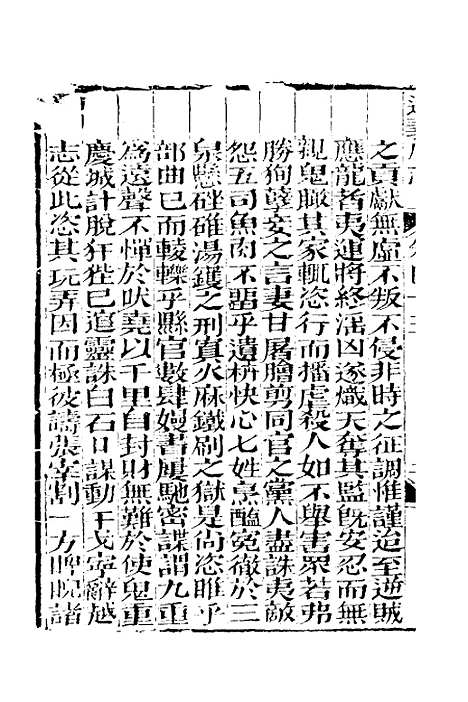 之貢獻無虛不叛不侵非時之征調惟謹迨至逆賊
應龍者夷運將終淫凶遂熾天奪其監旣安忍而無
親鬼瞰其家輒恣行而播虐殺人如不舉害眾若弗
勝狗孽妾之言妻甘屠膾剪同官之黨人盡誅夷敵
怨五司魚肉不噩乎遺枿快心七姓烹醢寃徹於三
泉懸硾碓湯鑊之刑寘火麻鐵刷之獄是尚恣睢乎
部曲已而輘轢乎縣官數肆嫚書屢馳密諜謂九重
為遠聲不憚於吠堯以千里自封財無難於使鬼重
慶城計脫狂狴已逭靈誅白石口謀動干戈寧辭越
志從此恣其玩弄因而極彼譸張宰割一方睥睨諸